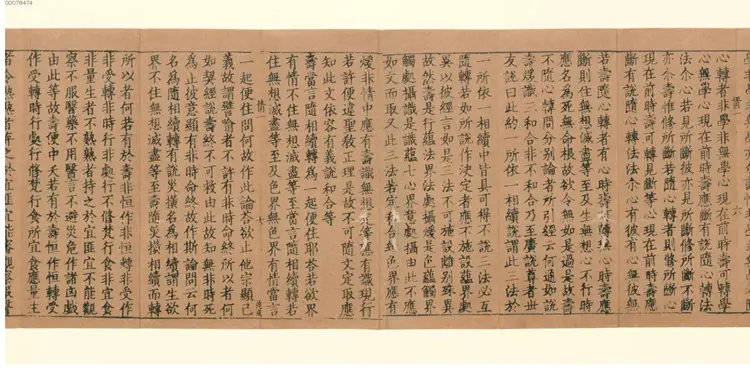 心轉者非學非無學心現在前時壽可轉學
心無學心現在前時壽應斷有說隨心轉法
法尒心若見所斷彼亦見所斷修所斷不斷
亦尒壽唯修所斷若隨心轉者則修所斷心
現在前時壽可轉見斷等心現在前時壽應
斷有說隨心轉法法尒心有彼有心無彼無
若壽隨心轉者有心時壽可轉無心時壽應
斷則住無想滅盡等至及生無想心不行時
應名為死無命根故欲令無如是過是故壽
不隨心轉問分別論者所引經云何通如說
壽煖識三和合非不和合乃至廣說尊者世
友說曰此約一所依一相續說謂此三法於
一所依一相續中皆具可得不說三法必互
隨轉若如所說作決定者應不施設蘊界處
異以彼經言如是三法不可施設離別殊異
故然壽是行蘊法界法處攝煖是色蘊觸界
觸處攝識是識蘊七心界意處攝由此不應
如文而取又此三法若定和合無色界應有
煖非情中應有壽識無想定等應有識現行
若許便違聖教正理是故不可隨文定取應
知此文依容有義說和合等
壽當言隨相續轉為一起便住耶荅若欲界
有情不住無想滅盡等至當言隨相續轉若
住無想滅盡等至及色界無色界有情當言
一起便住問何故作此論荅欲止他宗顯己
義故謂譬喻者不許有非時命終所以者何
如契經說壽終不可救由此故知無非時死
為止彼意顯有非時命終故作斯論問云何
名為隨相續轉有說災損名為相續謂生欲
界不住無想滅盡等至壽隨災損相續而轉
所以者何若有於壽非恒作非恒轉非受作
非受轉時行非處行不修梵行食非宜食
非量生者不熟熟者持之於宜匪宜不能觀
察不服醫藥不用醫言不避災危作諸凶戲
由此等故壽便中夭若有於壽恒作恒轉受
作受轉時行處行修梵行食所宜食應量生
00078474